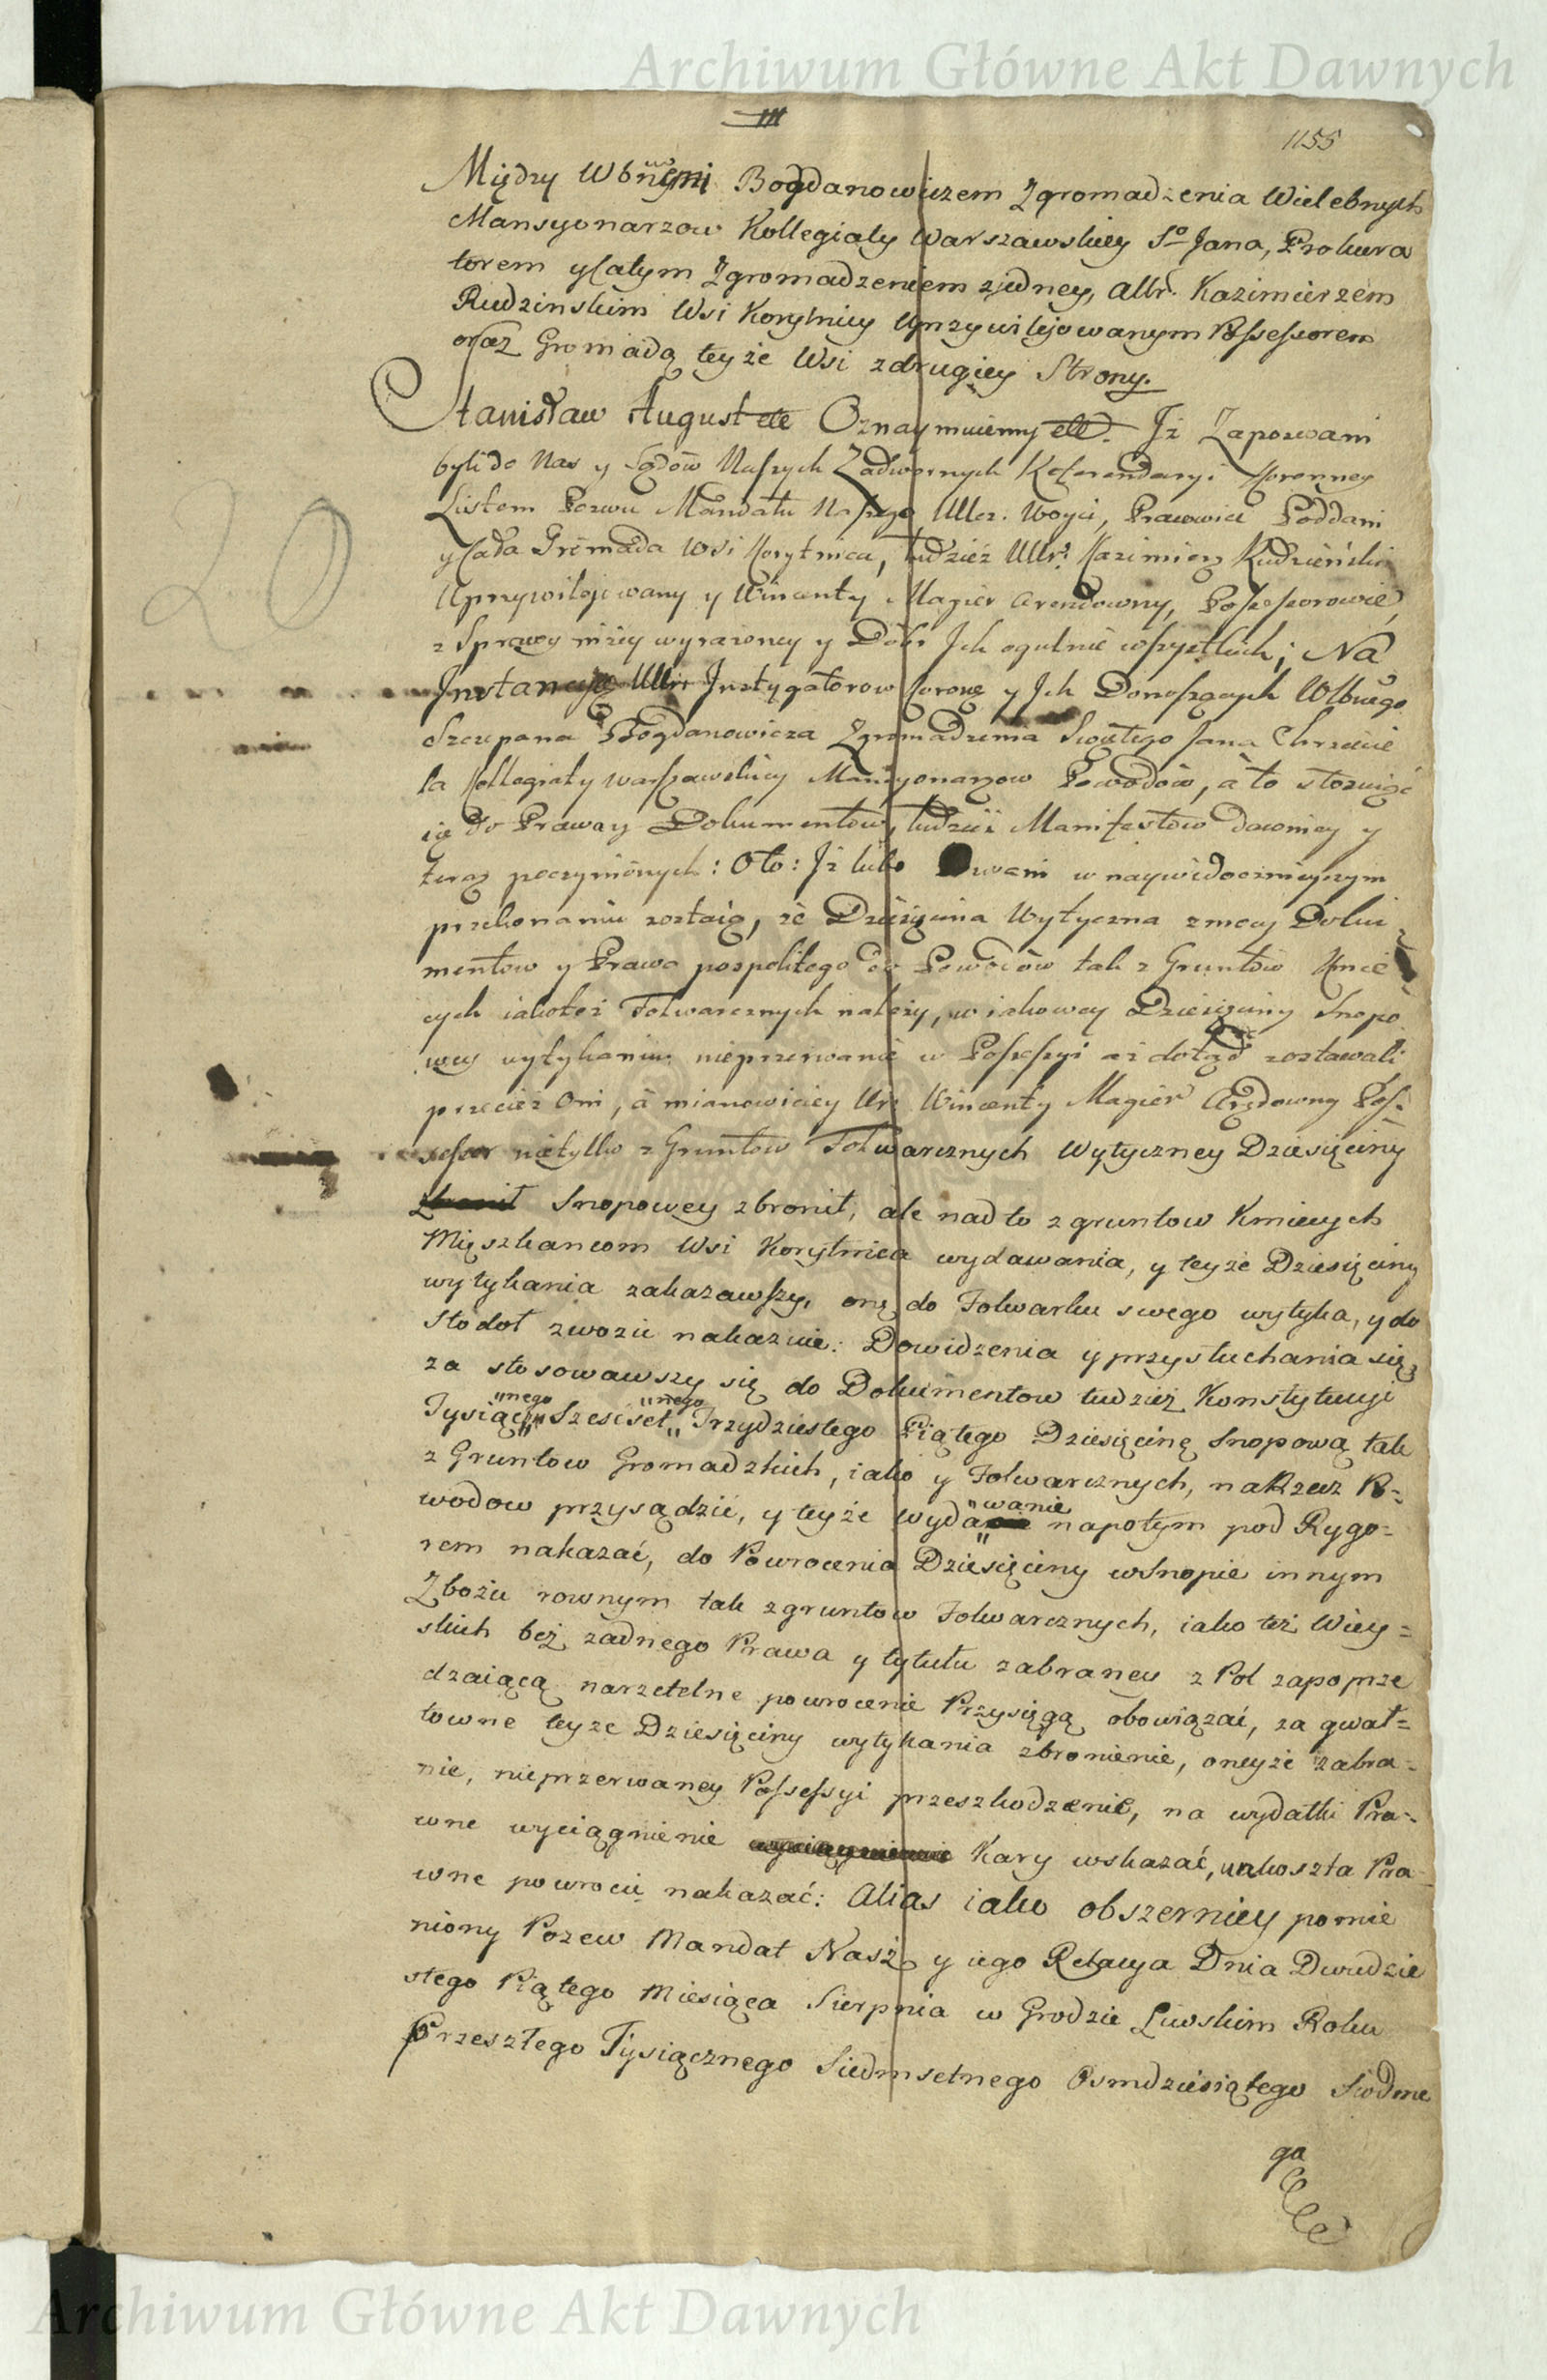 Archiwum Główne Akt Dawnych
III
1155
Między Wbnymi Bogdanowiczem Zgromadzenia Wielebnych
Mansyonarzow Kollegiaty Warszawskiey So Jana, Prokura
torem y całym Zgromadzeniem z jedney, a Ur. Kazimierzem
Rudzinskim Wsi Korytnicy Uprzywilejowanym Possessorem
oraz Gromadą teyże Wsi z drugiey Strony.
Stanisław August etc Oznaymuiemy etc. Iż Zapozwani
byli do Nas y Sądów Naszych Zadwornych Referendaryi Koronney
Listem Pozwu Mandatu Naszego, Woyci, Prawowici Poddani
y cała Gromada Wsi Korytnica, tudzież Ur. Kazimierz Rudzieński
Uprzywilejowany y Wincenty Magier arendowny, Possessorowie,
z Sprawy niżey wyrażoney y Dóbr Ich ogulnie wszystkich; Na
Instancyą Ur. Instygatorow Korony y Ich Donoszących Wlbnego
Szczepana Bogdanowicza Zgromadzenia Swiętego Jana Chrzcicie
la Kollegiaty warszawskiey Mansyonarzow Powodów, a to stosuiąc
się do Praw y Dokumentow, tudzież Manifestow dawniey y
teraz poczynionych: Oto: Iż lubo Pozwani w naywidocznieyszym
przekonaniu zostaią, że Dziesięcina Wytyczna z mocy Doku
mentow y Prawa pospolitego do Powodów tak z Gruntów Kmie
cych iakoteż Folwarcznych należy, w iakowey Dziesięciny Snopo
wey wytykaniu nieprzerwanie w Possessyi aż dotąd zostawali
przecież Oni, a mianowiciey Ur. Wincenty Magier Arędowny Pos
sessor nietylko z Gruntow Folwarcznych Wytyczney Dziesięciny
zbronił Snopowey zbronił, ale nadto z gruntow Kmiecych
Mięszkancom Wsi Korytnica wydawania, y teyże Dziesięciny
wytykania zakazawszy, onę do Folwarku swego wytyka, y do
Stodoł zwozic nakazuie: Do widzenia y przysłuchania się
za stosowawszy się do Dokumentow tudzież Konstytucyi
Tysiącznego Szescsetnego Trzydziestego Piątego Dziesięcinę Snopową tak
z Gruntow Gromadzkich, iako y Folwarcznych, na Rzecz Po=
wodow przysądzić, y teyże wydawanie napotym pod Rygo=
rem nakazać, do Powrocenia Dziesięciny w Snopie innym
Zbożu rownym tak z gruntow Folwarcznych, iako też Wiey=
skich bez żadnego Prawa y tytułu zabraney z Pol zapoprze
dzaiącą na rzetelne powrocenie Przysięgą obowiązać, za gwał=
towne teyże Dziesięciny wytykania zbronienie, oneyże zabra=
nie, nieprzerwaney Possessyi przeszkodzenie, na wydatki Pra=
wne wyciągnienie Kary wskazać, koszta Pra
wne powrocić nakazać: Alias iako obszerniey pomie
niony Pozew Mandat Nasz y iego Relacya Dnia Dwudzie
stego Piątego Miesiąca Sierpnia w Grodzie Liwskim Roku
Przeszłego Tysiącznego Siedmsetnego Osmdziesiątego Siodme
go
20
Archiwum Główne Akt Dawnych